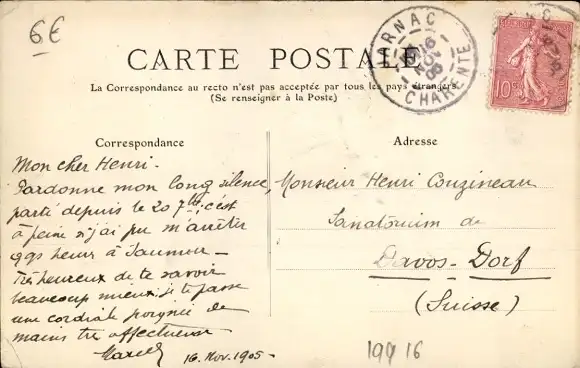 6€
CARTE POSTALE
La Correspondance au recto n'est pas acceptée par tous les pays étrangers.
(Se renseigner à la Poste)
JARNAC
16
NOV
05
CHARENTE
10
Correspondance
Adresse
Mon cher Henri.
Pardonne mon long silence,
parti depuis le 20 7bre, c'est
à peine si j'ai pu m'arrêter
qqs heures à Saumur —
Très heureux de te savoir
beaucoup mieux, je te passe
une cordiale poignée de
mains très affectueuse
Marcel
16. Nov. 1905 -
Monsieur Henri Couzineau
Sanatorium de
Davos-Dorf
(Suisse)
16